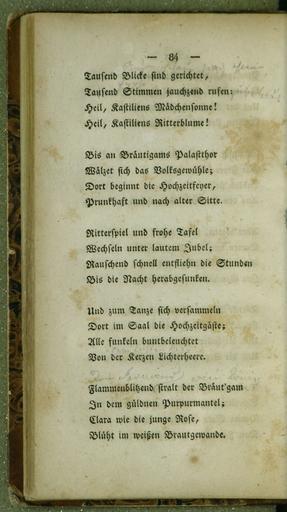 — 84 —
Tausend Blicke sind gerichtet,
Tausend Stimmen jauchzend rufen:
Heil, Kastiliens Mädchensonne!
Heil, Kastiliens Ritterblume!
Bis an Bräutigams Palastthor
Wälzet sich das Volksgewühle;
Dort beginnt die Hochzeitfeyer,
Prunkhaft und nach alter Sitte.
Ritterspiel und frohe Tafel
Wechseln unter lautem Jubel;
Rauschend schnell entfliehn die Stunden
Bis die Nacht herabgesunken.
Und zum Tanze sich versammeln
Dort im Saal die Hochzeitgäste;
Alle funkeln buntbeleuchtet
Von der Kerzen Lichterheere.
Flammenblitzend stralt der Bräut'gam
In dem güldnen Purpurmantel;
Clara wie die junge Rose,
Blüht im weißen Brautgewande.